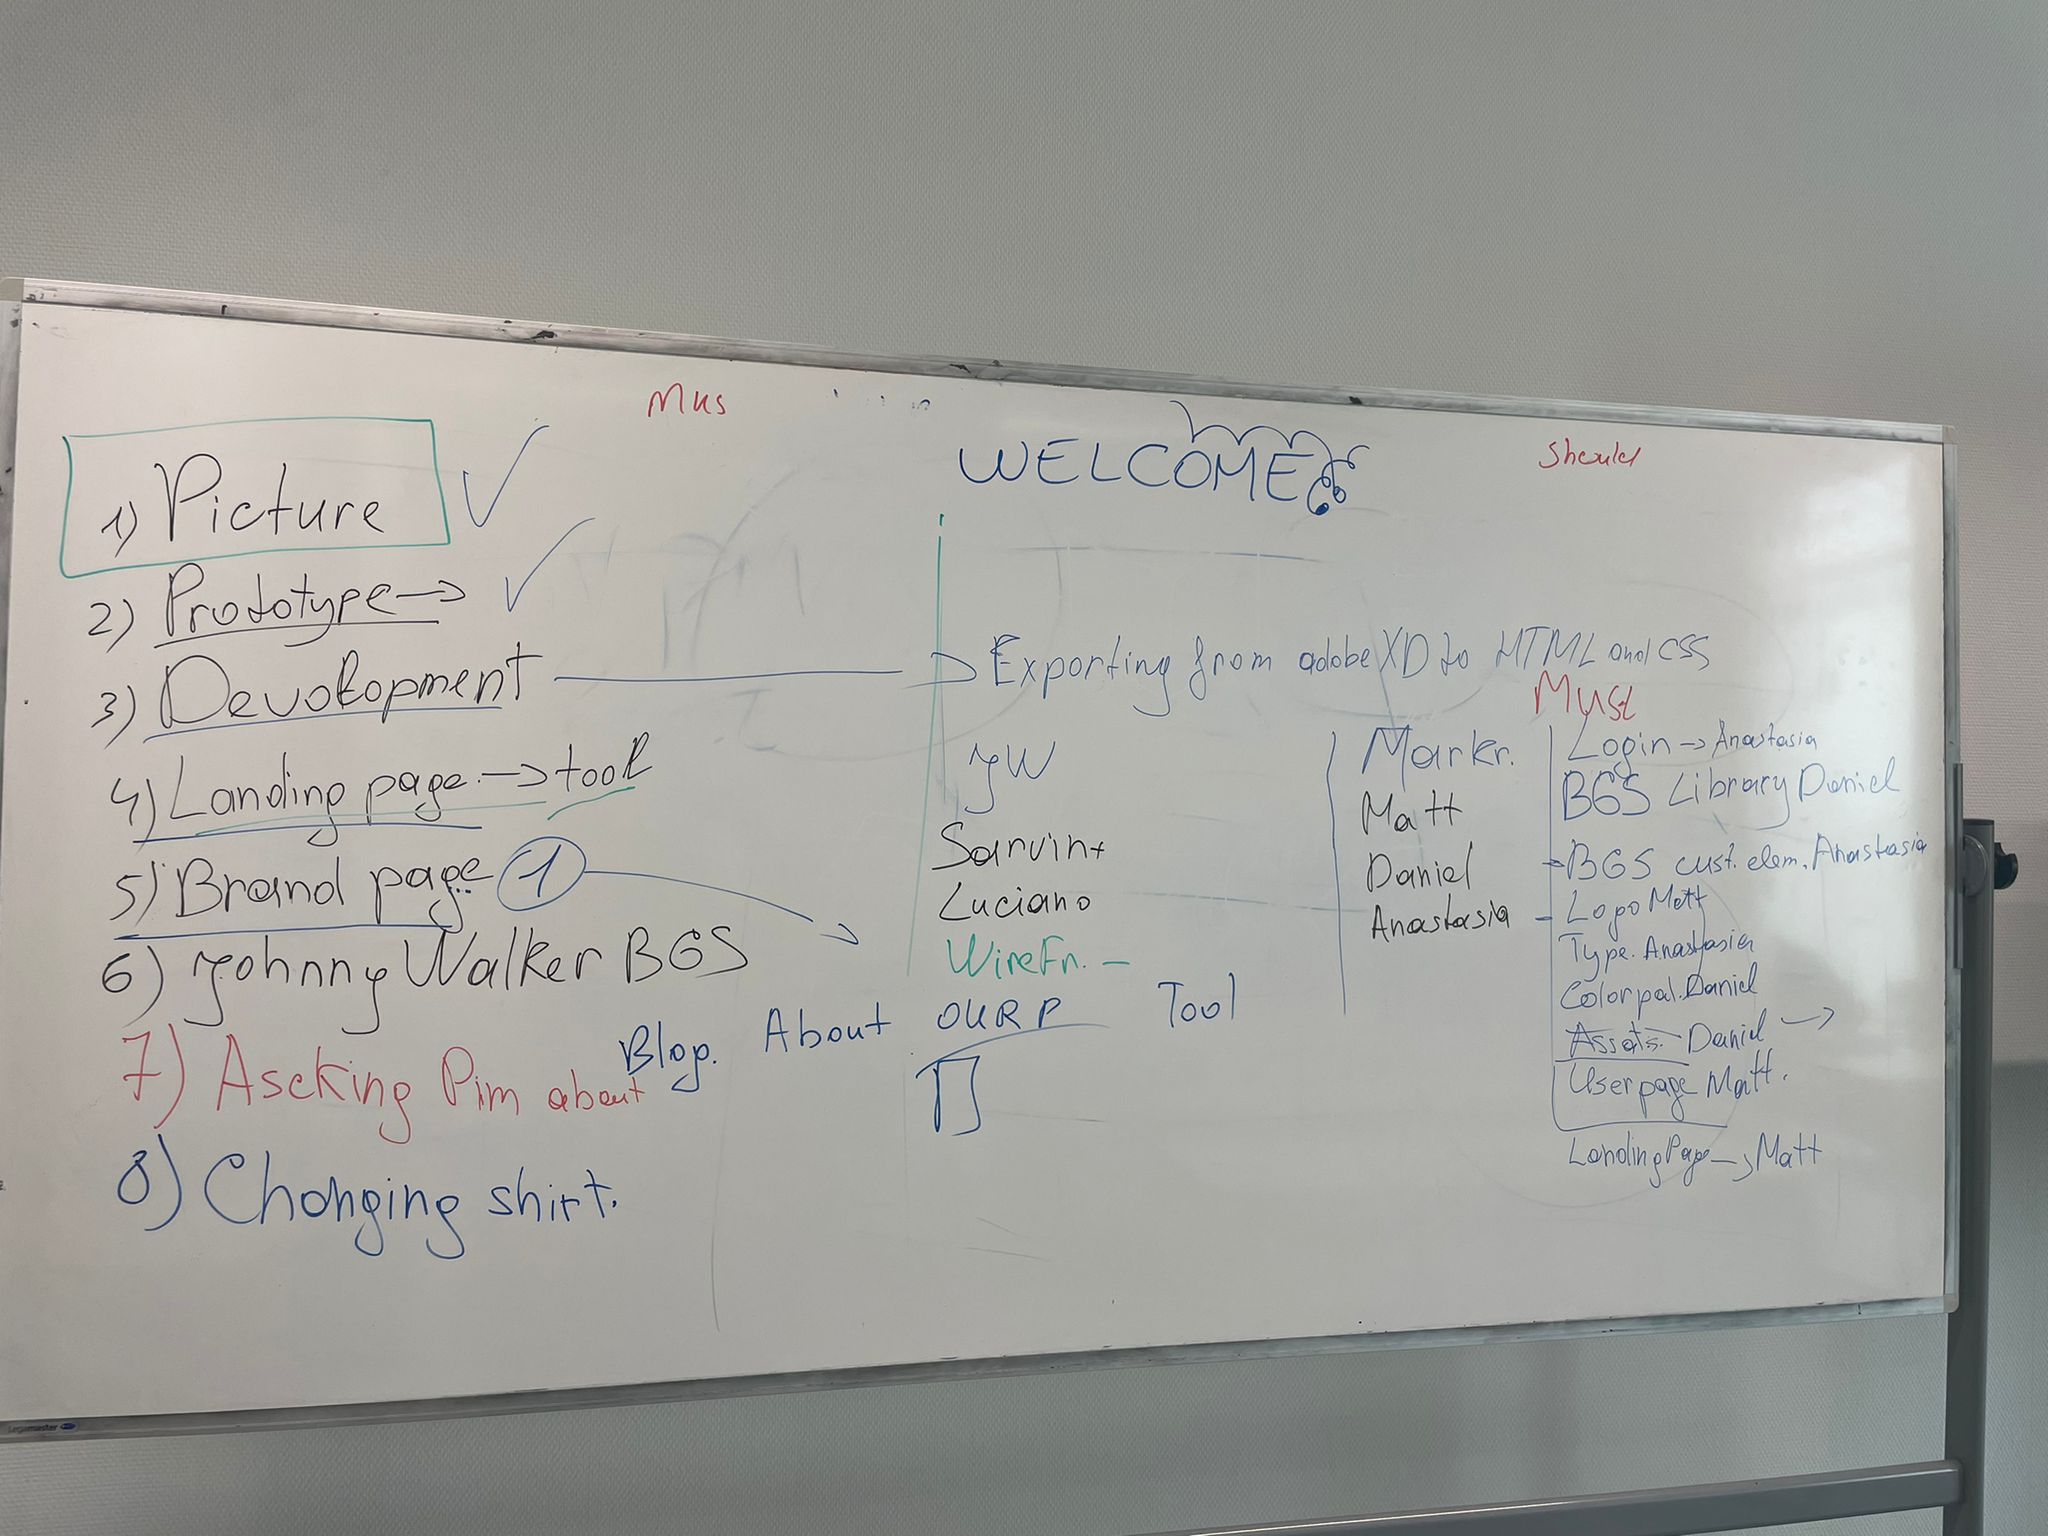 Mus
WELCOME
Should
1) Picture
2) Prototype →
3) Development → Exporting from adobe XD to HTML and CSS
4) Landing page. → tool
5) Brand page 1
6) Johnny Walker BGS
7) Ascking Pim about
8) Changing shirt.
JW
Sarvin
Luciano
WireFr. -
Blog. About OUR P Tool
Markr.
Matt
Daniel
Anastasia
Must
Login → Anastasia
BGS Library Daniel
BGS cust. elem. Anastasia
Logo Matt
Type. Anastasia
Color pal. Daniel
Assets - Daniel →
User page Matt.
Landing Page → Matt